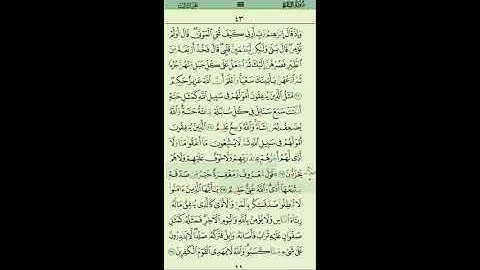 سُورَةُ البَقَرَةِ
٤٣
وَإِذْ قَالَ إِبْرَٰهِيمُ رَبِّ أَرِنِي كَيْفَ تُحْيِ الْمَوْتَىٰ قَالَ أَوَلَمْ
تُؤْمِن قَالَ بَلَىٰ وَلَٰكِن لِّيَطْمَئِنَّ قَلْبِي قَالَ فَخُذْ أَرْبَعَةً مِّنَ
الطَّيْرِ فَصُرْهُنَّ إِلَيْكَ ثُمَّ اجْعَلْ عَلَىٰ كُلِّ جَبَلٍ مِّنْهُنَّ جُزْءًا
ثُمَّ ادْعُهُنَّ يَأْتِينَكَ سَعْيًا وَاعْلَمْ أَنَّ اللَّهَ عَزِيزٌ حَكِيمٌ
مَّثَلُ الَّذِينَ يُنفِقُونَ أَمْوَٰلَهُمْ فِي سَبِيلِ اللَّهِ كَمَثَلِ حَبَّةٍ
أَنبَتَتْ سَبْعَ سَنَابِلَ فِي كُلِّ سُنبُلَةٍ مِّائَةُ حَبَّةٍ وَاللَّهُ
يُضَٰعِفُ لِمَن يَشَاءُ وَاللَّهُ وَٰسِعٌ عَلِيمٌ الَّذِينَ يُنفِقُونَ
أَمْوَٰلَهُمْ فِي سَبِيلِ اللَّهِ ثُمَّ لَا يُتْبِعُونَ مَا أَنفَقُوا مَنًّا وَلَا
أَذًى لَّهُمْ أَجْرُهُمْ عِندَ رَبِّهِمْ وَلَا خَوْفٌ عَلَيْهِمْ وَلَا هُمْ
يَحْزَنُونَ قَوْلٌ مَّعْرُوفٌ وَمَغْفِرَةٌ خَيْرٌ مِّن صَدَقَةٍ
يَتْبَعُهَا أَذًى وَاللَّهُ غَنِيٌّ حَلِيمٌ يَٰأَيُّهَا الَّذِينَ ءَامَنُوا
لَا تُبْطِلُوا صَدَقَٰتِكُم بِالْمَنِّ وَالْأَذَىٰ كَالَّذِي يُنفِقُ مَالَهُ
رِئَاءَ النَّاسِ وَلَا يُؤْمِنُ بِاللَّهِ وَالْيَوْمِ الْآخِرِ فَمَثَلُهُ كَمَثَلِ
صَفْوَانٍ عَلَيْهِ تُرَابٌ فَأَصَابَهُ وَابِلٌ فَتَرَكَهُ صَلْدًا لَّا يَقْدِرُونَ
عَلَىٰ شَيْءٍ مِّمَّا كَسَبُوا وَاللَّهُ لَا يَهْدِي الْقَوْمَ الْكَٰفِرِينَ